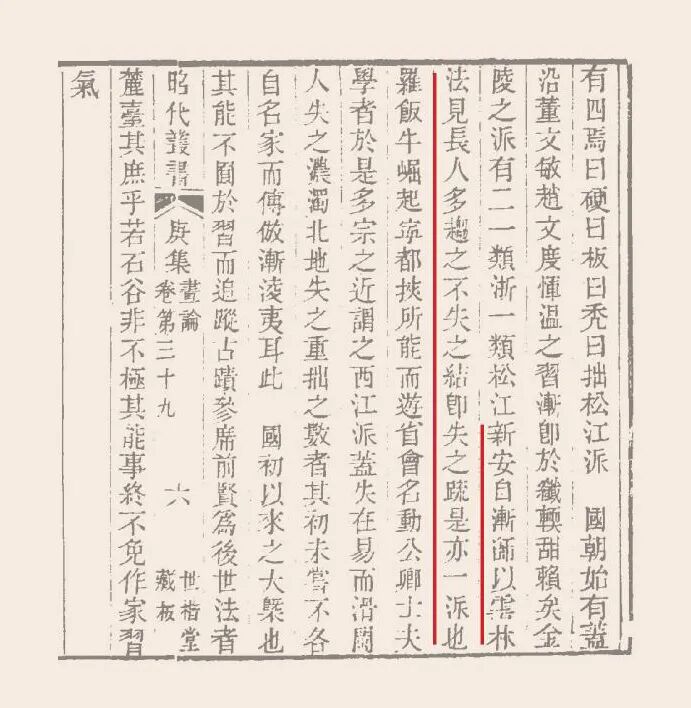 有四焉曰硬曰板曰禿曰拙松江派　國朝始有蓋
沿董文敏趙文度惲溫之習漸卽於纖輭甜賴矣金
陵之派有二一類浙一類松江新安自漸師以雲林
法見長人多趨之不失之結卽失之疏是亦一派也
羅飯牛崛起寧都挾所能而遊省會名動公卿士夫
學者於是多宗之近謂之西江派蓋失在易而滑閩
人失之濃濁北地失之重拙之數者其初未嘗不各
自名家而傳倣漸淩夷耳此　國初以來之大槩也
其能不囿於習而追蹤古蹟參席前賢爲後世法者
昭代叢書　庚集　畫論　卷第三十九　六　世楷堂　藏板
麓臺其庶乎若石谷非不極其能事終不免作家習
氣